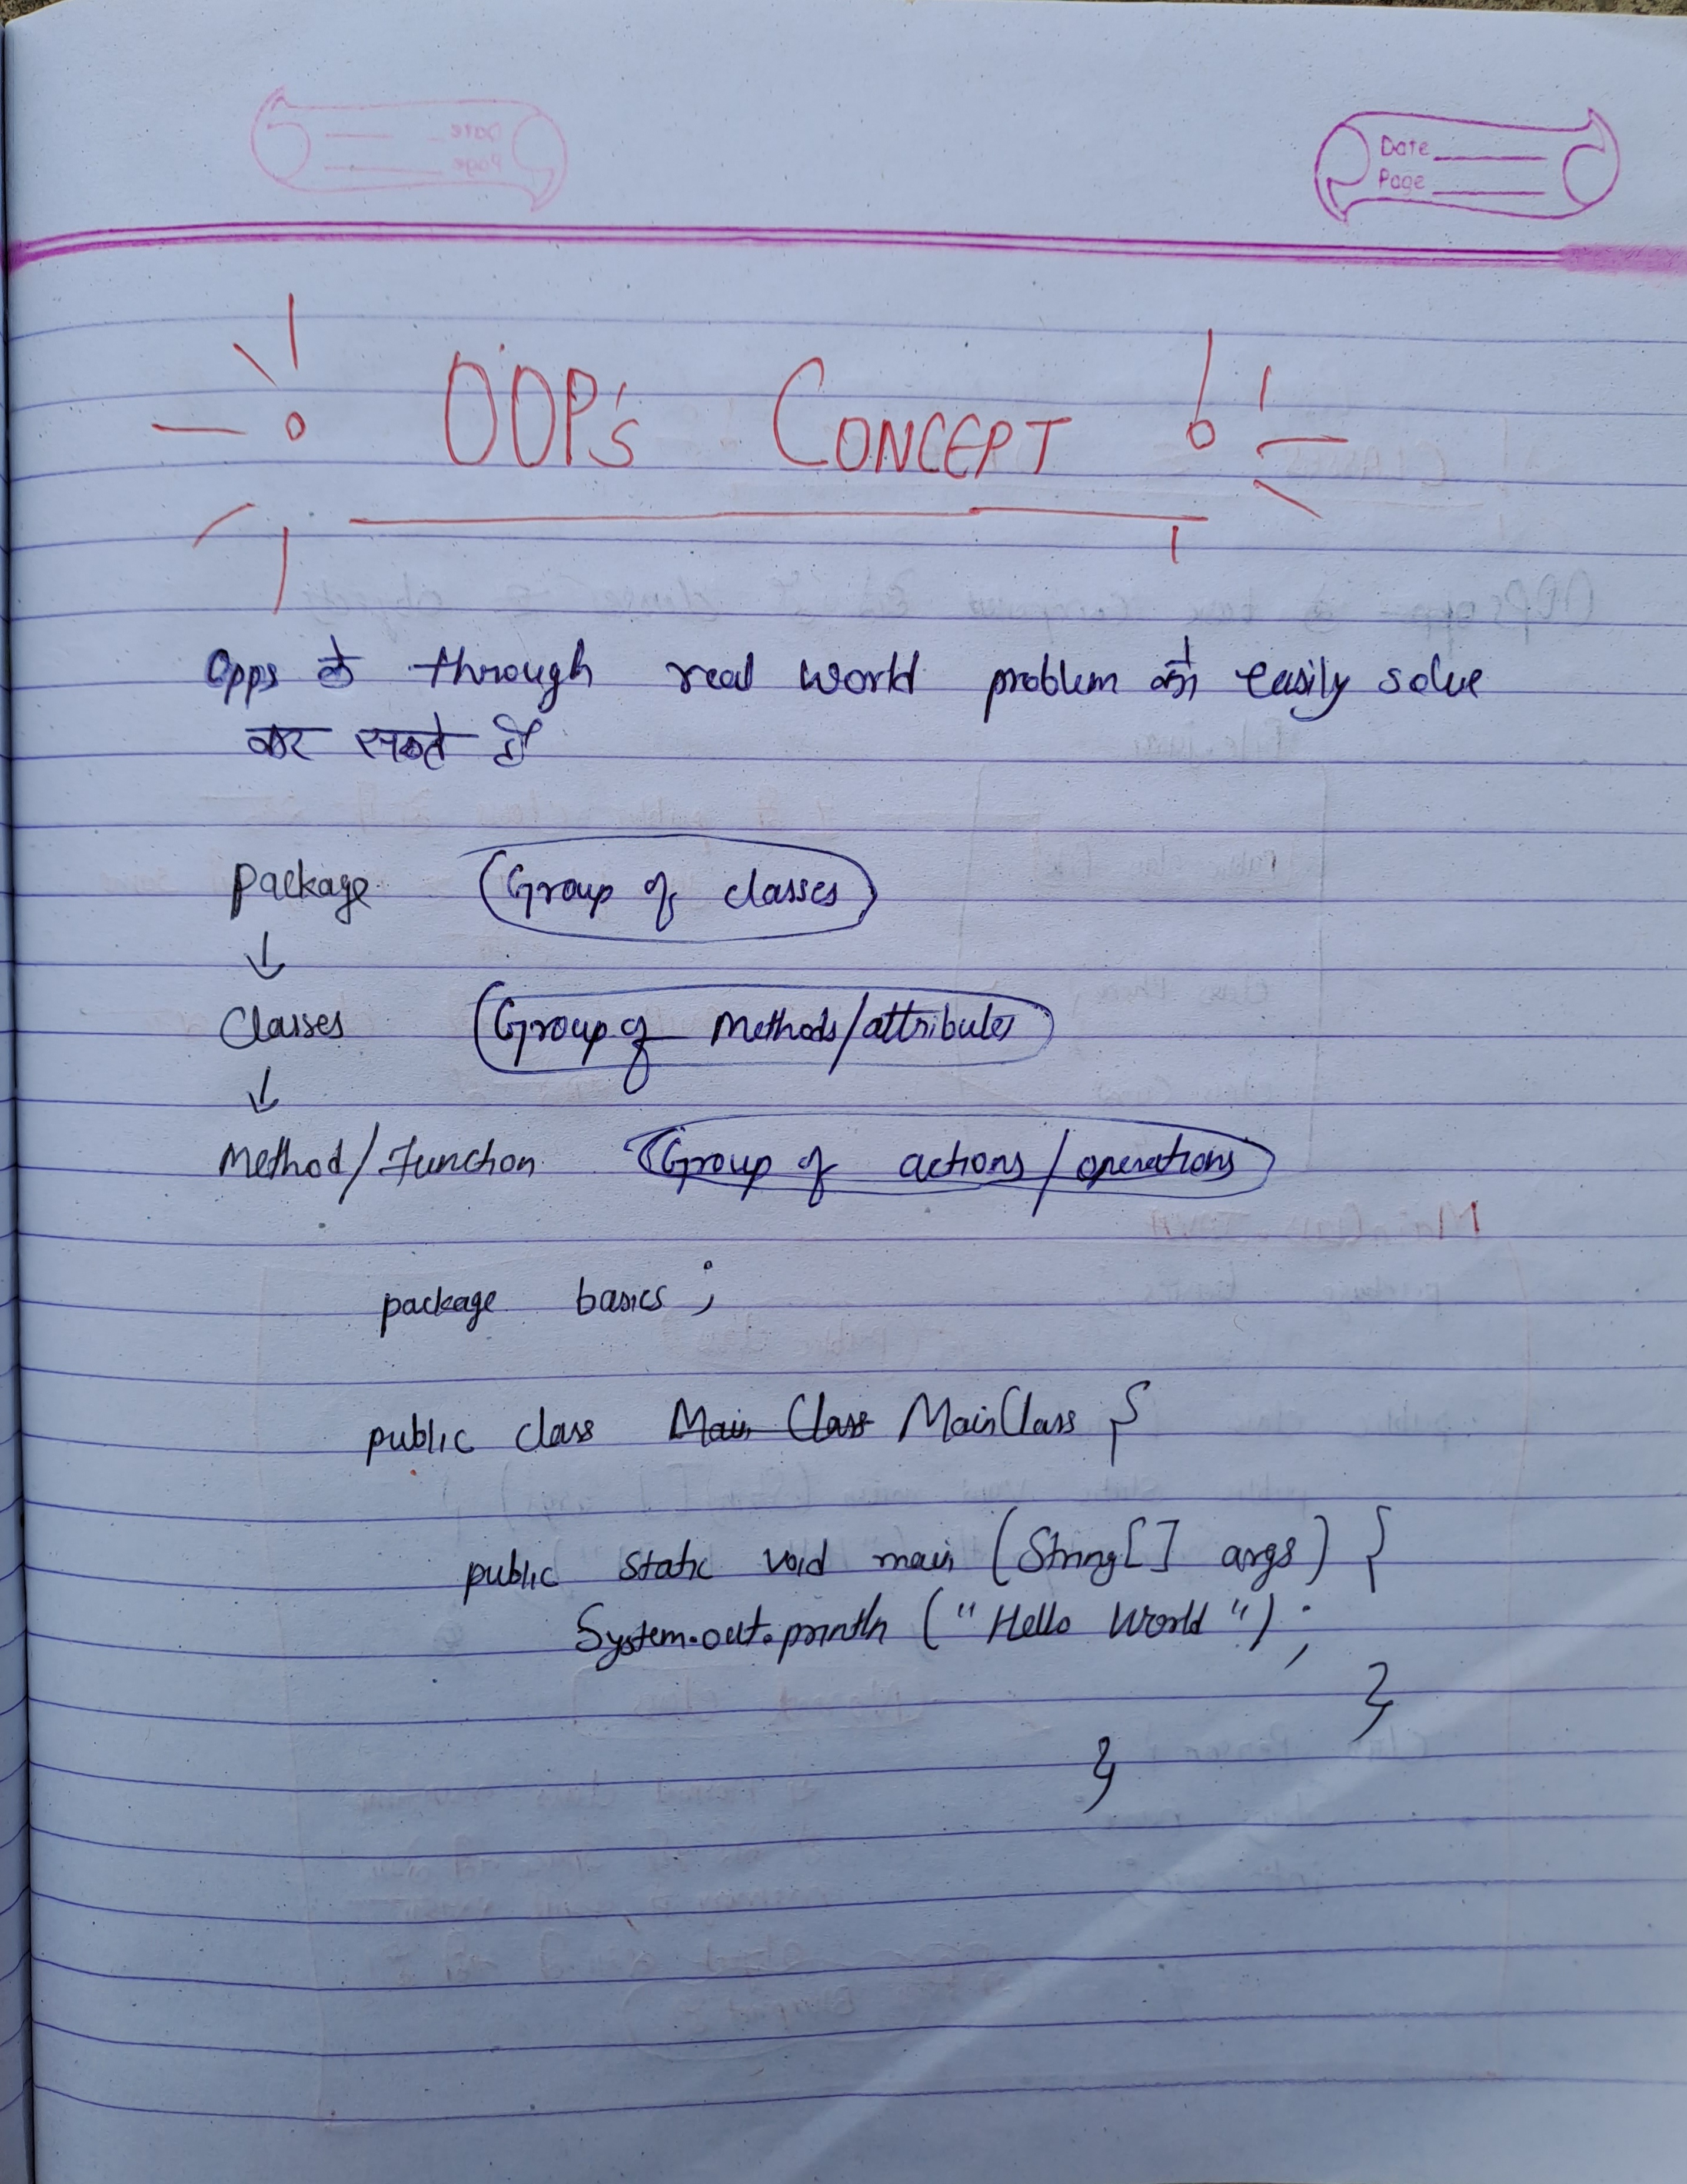 Date
Page
OOP's CONCEPT
Opps के through real world problem को easily solve
कर सकते हैं
package (Group of classes)
↓
Classes (Group of Methods/attributes)
↓
Method/Function (Group of actions/operations)
package basics ;
public class Main Class MainClass {
public static void main (String[] args) {
System.out.println ("Hello World") ;
}
}